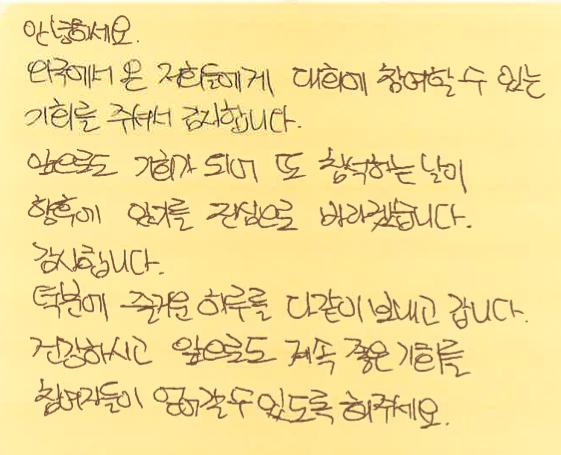 안녕하세요.
외국에서 온 저희들에게 대회에 참여할 수 있는
기회를 주셔서 감사합니다.
앞으로도 기회가 되어 또 참석하는 날이
향후에 있기를 진심으로 바라겠습니다.
감사합니다.
덕분에 즐거운 하루를 다같이 보내고 갑니다.
건강하시고 앞으로도 계속 좋은 기회를
참여자들이 얻어갈 수 있도록 해주세요.